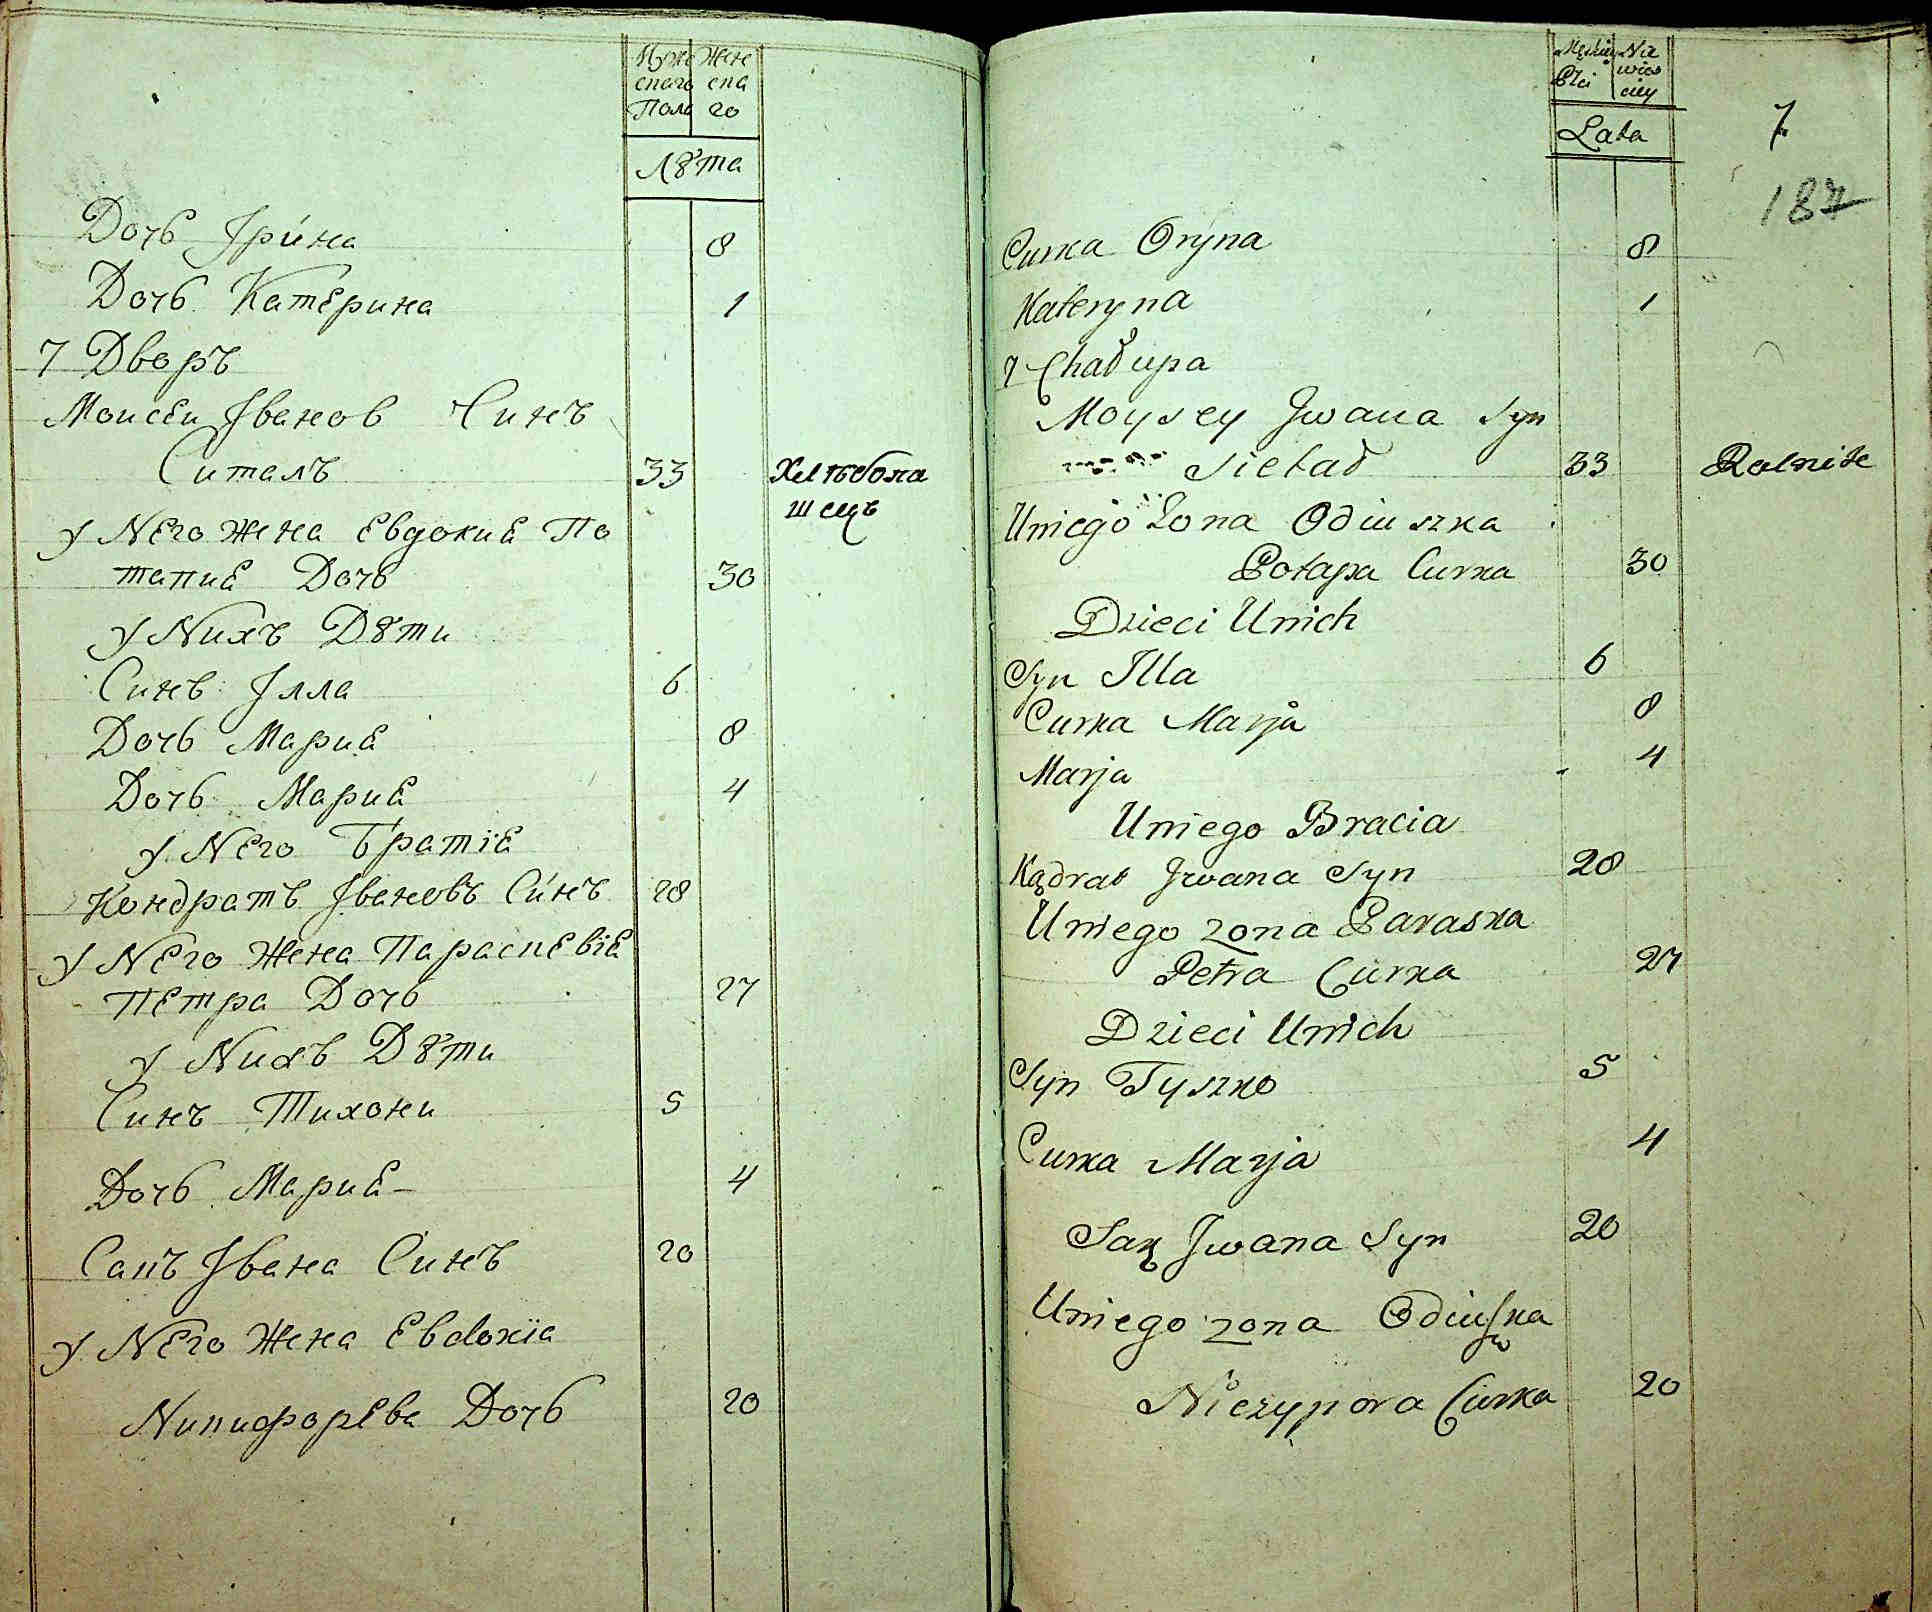 Муже Жене
скаго ска
Пола го
Лѣта
Дочь Ірина 8
Дочь Катерина 1
7 Дворъ
Моисеи Іванов Синъ
Ситалъ 33 Хлѣбопа
шецъ
у Него Жена Евдокиѣ По
тапиѣ Дочь 30
у Нихъ Дѣти
Синъ Ілла 6
Дочь Мариѣ 8
Дочь Мариѣ 4
у Него Братіѣ
Кондратъ Івановъ Синъ 28
у Него Жена Параскевіѣ
Петра Дочь 27
у Нихъ Дѣти
Синъ Тихони 5
Дочь Мариѣ 4
Сакъ Івана Синъ 20
у Него Жена Евdокіа
Никифорева Дочь 20
Męzkiey Nie
Płci wieś
ciey
Lata
7
187
Curka Oryna 8
Kateryna 1
7 Chałupa
Moysey Jwana Syn
Sietał 33 Rolnik
Uniego Żona Odiuszka
Potapa Curka 30
Dzieci Unich
Syn Illa 6
Curka Marja 8
Marja 4
Uniego Bracia
Kądrat Jwana Syn 28
Uniego zona Paraska
Petra Curka 27
Dzieci Unich
Syn Tyszko 5
Curka Marja 4
Sak Jwana Syn 20
Uniego zona Odiuszka
Niczypora Curka 20